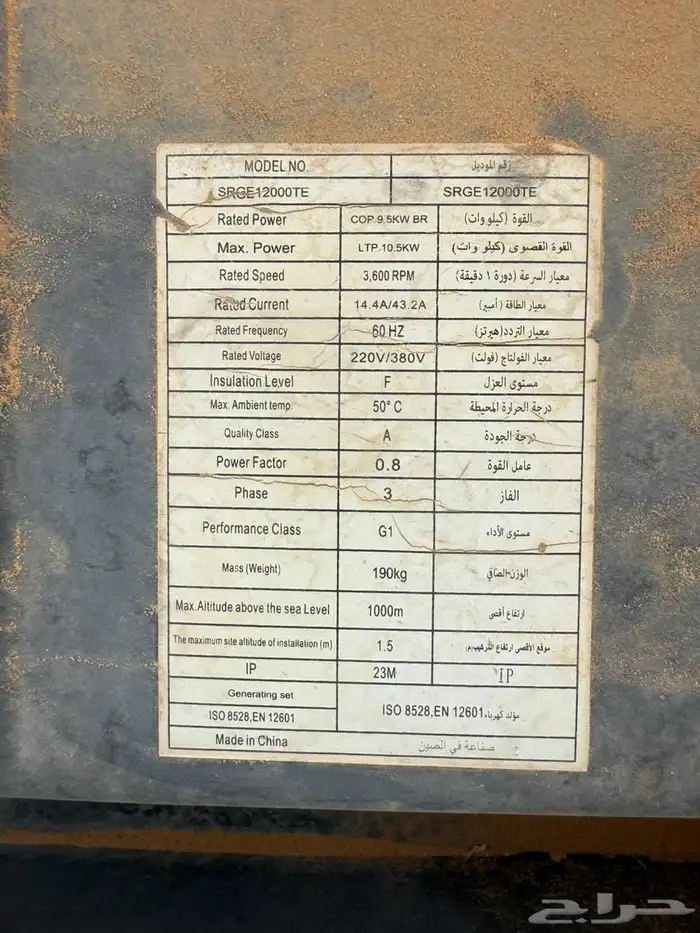 MODEL NO. رقم الموديل
SRGE12000TE SRGE12000TE
Rated Power COP 9.5KW BR القوة (كيلو وات)
Max. Power LTP 10.5KW القوة القصوى (كيلو وات)
Rated Speed 3,600 RPM معيار السرعة (دورة ١ دقيقة)
Rated Current 14.4A/43.2A معيار الطاقة (أمبير)
Rated Frequency 60 HZ معيار التردد(هيرتز)
Rated Voltage 220V/380V معيار الفولتاج (فولت)
Insulation Level F مستوى العزل
Max. Ambient temp. 50° C درجة الحرارة المحيطة
Quality Class A درجة الجودة
Power Factor 0.8 عامل القوة
Phase 3 الفاز
Performance Class G1 مستوى الأداء
Mass (Weight) 190kg الوزن الصافي
Max.Altitude above the sea Level 1000m ارتفاع أقصى
The maximum site altitude of installation (m) 1.5 موقع الأقصى ارتفاع التركيب(م)
IP 23M IP
Generating set
ISO 8528,EN 12601 مولد كهرباء،ISO 8528,EN 12601
Made in China صناعة في الصين
حراج